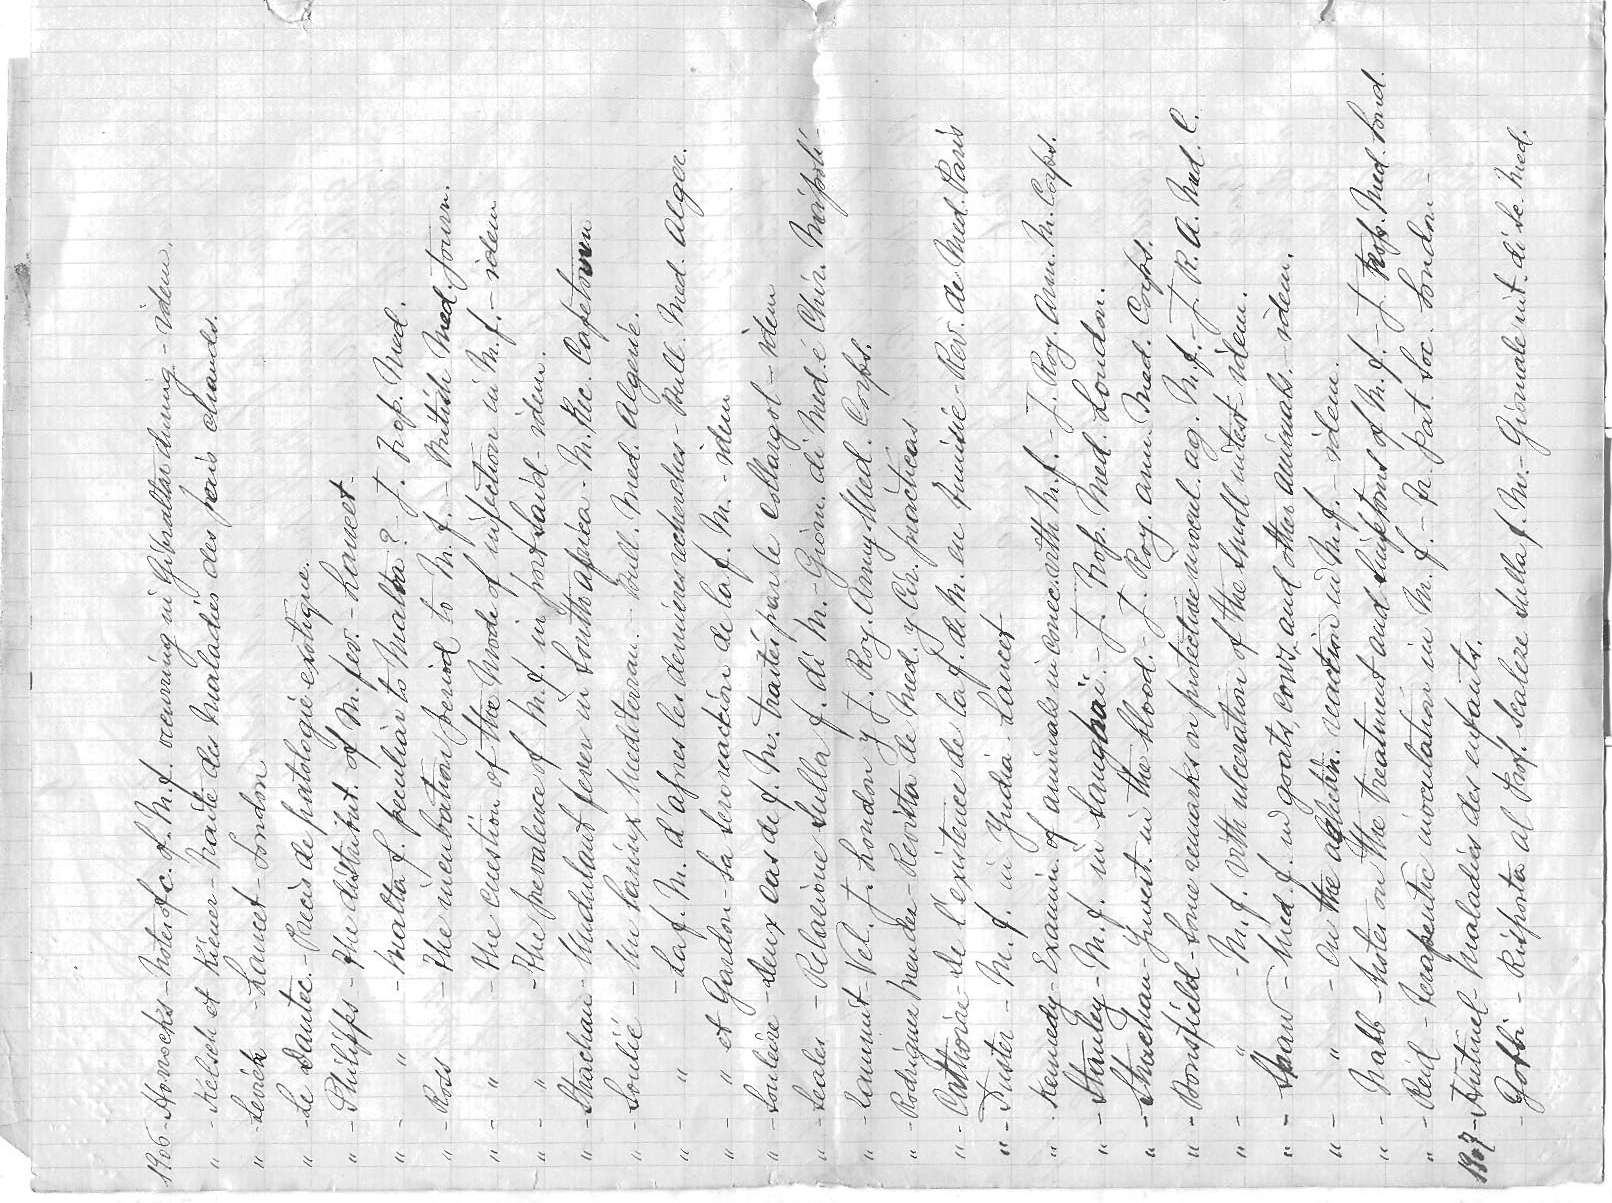 1906 - Horrocks - Notes of c. of M. f. occurring in Gibraltar during - idem.
" - Kelsch et Kiener - Traité des maladies des pais chauds.
" - Levick - Lancet - London
" - Le Dantec. - Precis de patologie exotique.
" - Philipps - The distribut. of M. fev. - Lancet -
" - " - Malta f. peculiar to Malta? - J. Trop. Med.
" - Ross - The incubation period to M. f. - British Med. Journ.
" - " - The cuestion of the mode of infection in M. f. - idem
" - " - The prevalence of M. f. in port Said - idem.
" - Strachan - Undulant fever in South africa - M. Rec. Capetown
" - Soulié - Un Mediterran. - Bull. Med. Algerie.
" - " - La f. M. d'apres les dernieres recherches - Bull. Med. Alger.
" - " et Gardon - La seroreaction de la f. M. - idem
" - Souleire - Deux cas de f. M. traités par le collargol - idem
" - Scales - Relasione sulla f. di M. - Giorn. di Med. é Chir. Napoli -
" - Lammit - Vel. J. London y J. Roy. Army Med. Corps.
" - Rodriguez Mendez - Revista de Med. y Cir. practicas
" - Cathoire - De l'existence de la f. de M. en Tunisie - Rev. de Med. Paris
" - Fuster - M. f. in Yndia - Lancet
" - Kennedy - Examin. of animals in conec. with M. f. - J. Roy. Arm. M. Corps.
" - Stanley - M. f. in Sanghaï. - J. Trop. Med. London.
" - Strachan - in the blood. - J. Roy. arm. Med. Corps.
" - Bonsfield - Some remarks on protective inocul. ag. M. f. - J. R. A. Med. C.
" - " - M. f. with ulceration of the small intest - idem.
" - Shaw - Med. f. in goats, cows, and other animals. - idem.
" - " - On the aglutin. reaction in M. f. - idem.
" - Nabb - Notes on the treatment and simptoms of M. f. - J. Trop. Med. Lond.
" - Reid - Terapeutic inoculation in M. f. - Tr. pat. Soc. London -
1907 - Hutinel - Maladies des enfants.
- Gobbi - Risposta al Prof. Scalere sulla f. M. - Giornale int. di Sc. Med.